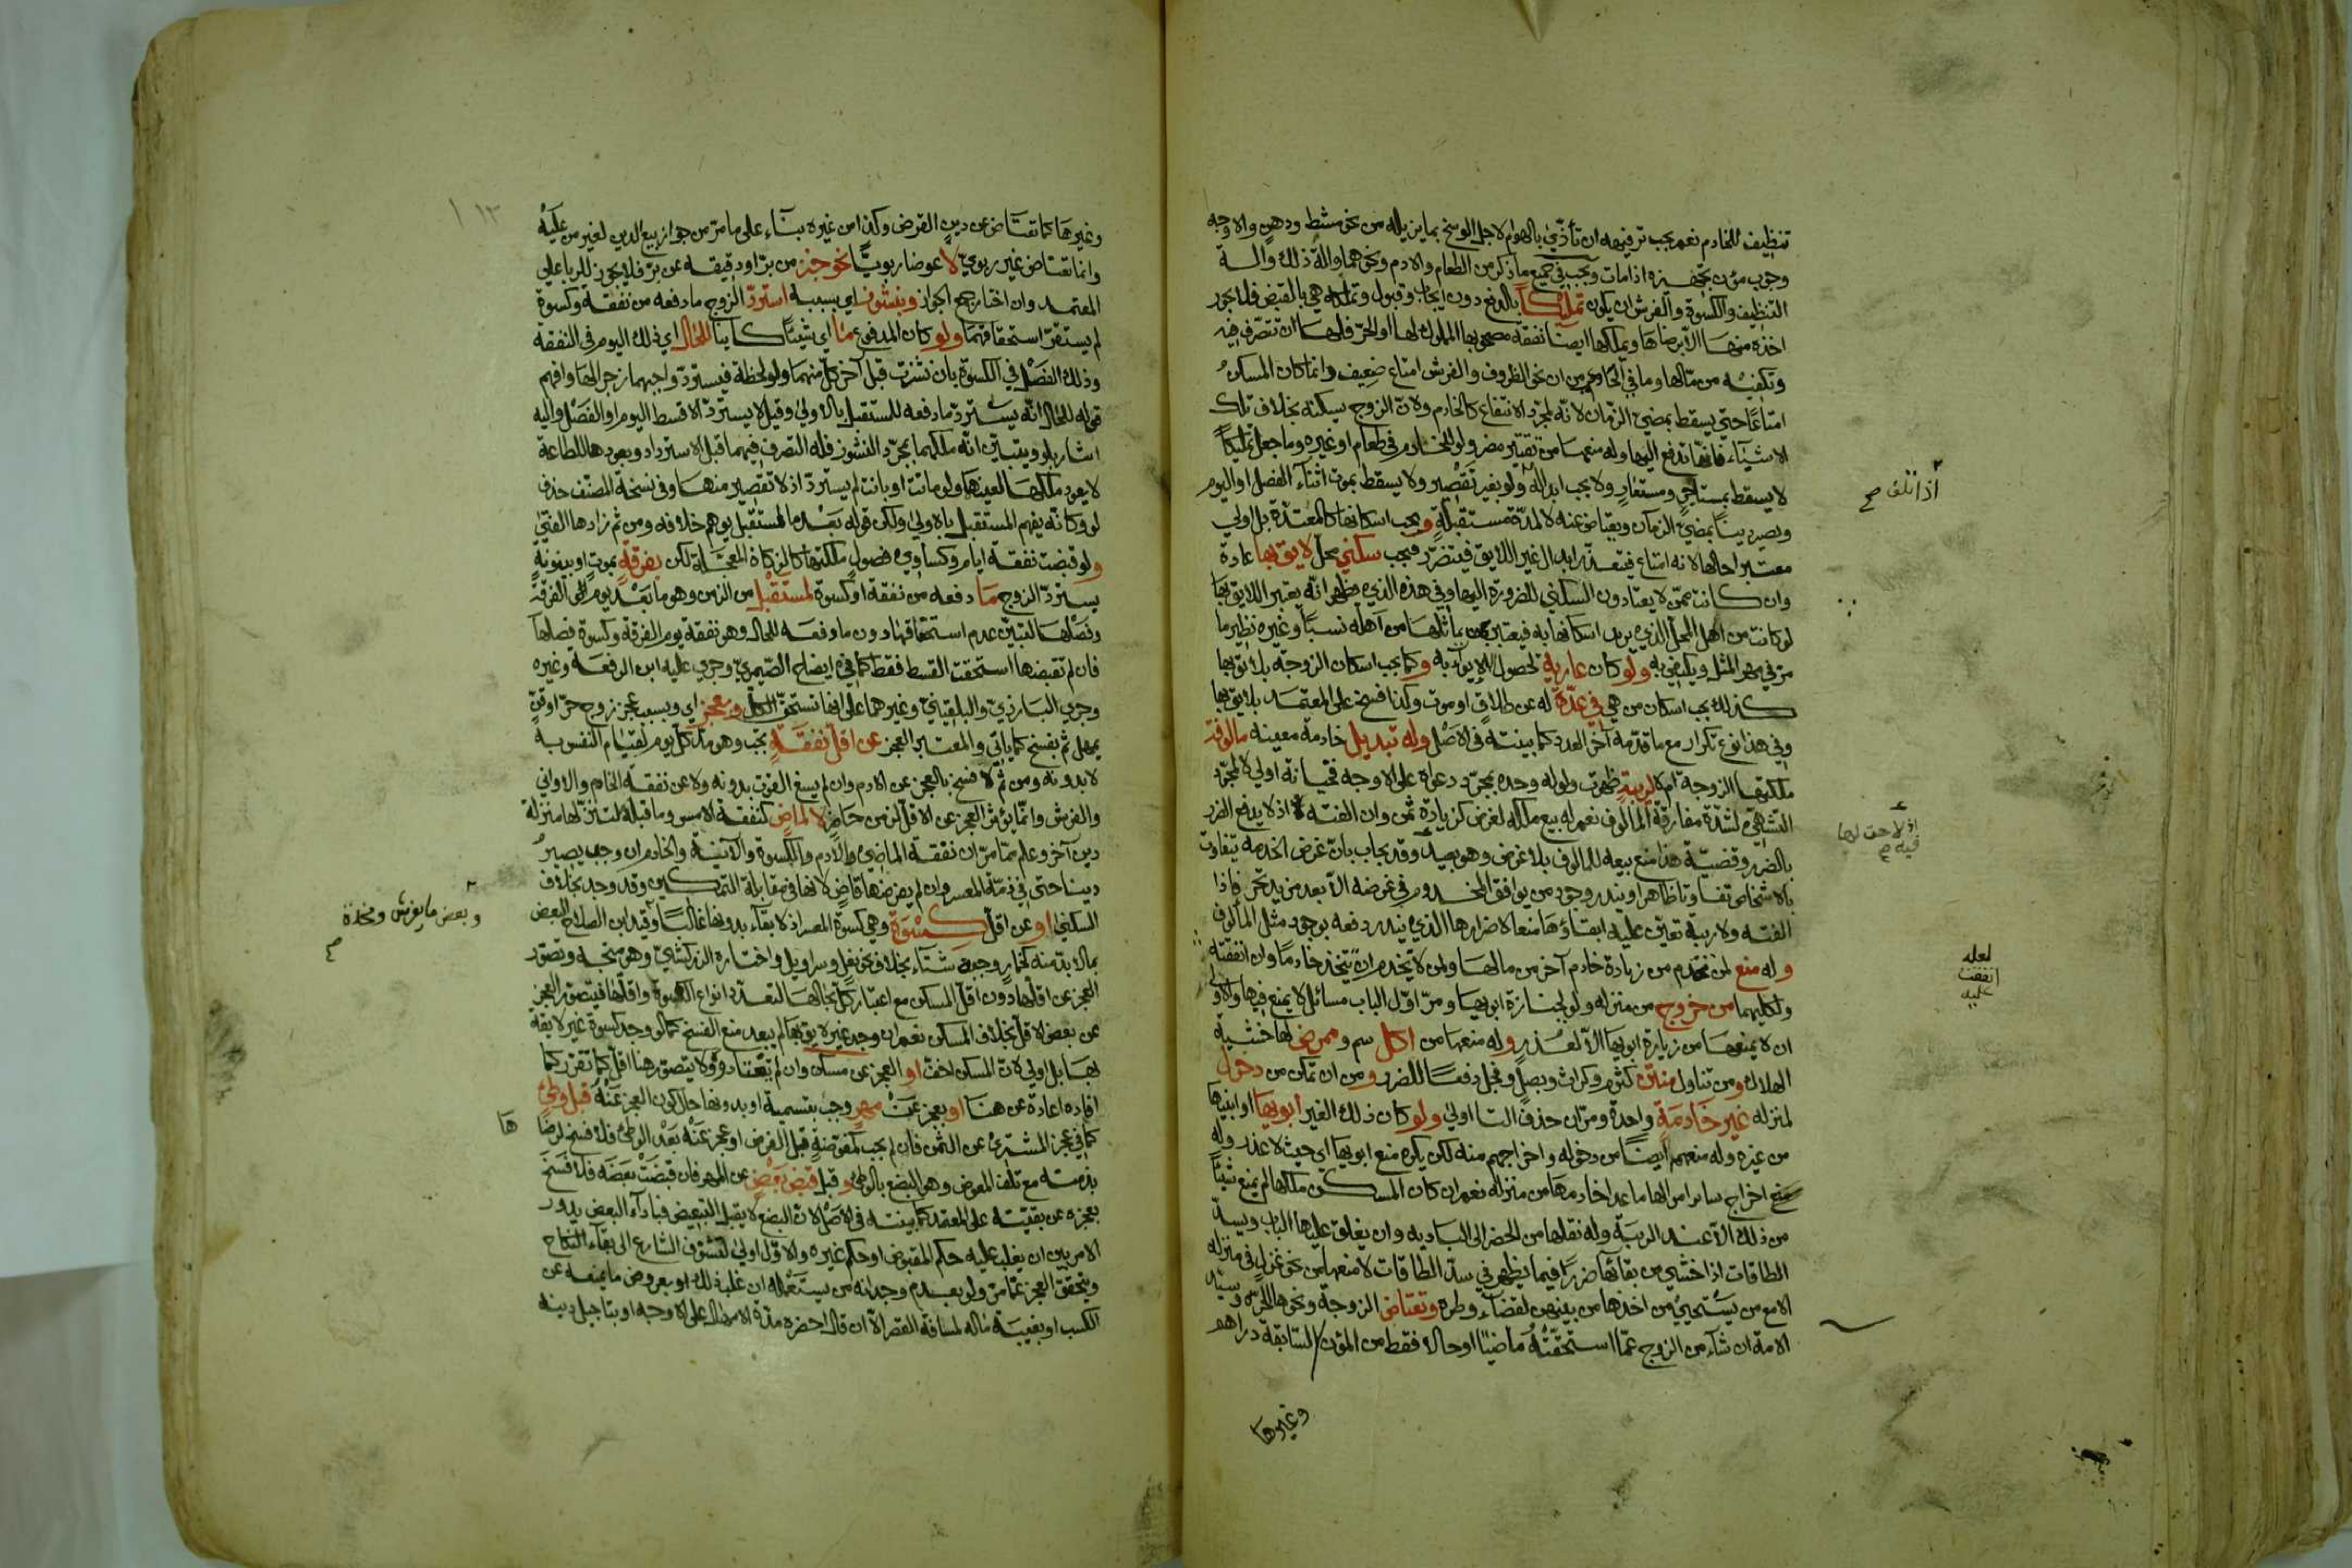 تنظيف للخادم نعم يجب ترفيهه ان تأذي بالهوام لاجل الوسخ بما يزيله من نحو مشط ودهن والاوجه
وجوب مؤن تجهيزه اذا مات ويجب في جميع ما ذكر من الطعام والادم ونحوهما والة ذلك والة
التنظيف والكسوة والفرش ان يكون تمليكا بالدفع دون ايجاب وقبول وتملكه هي بالقبض فلا يجوز
اخذه منها الا برضاها ويملكها ايضا نفقة مصحوبها المملوك لها او الحر فلها ان تتصرف فيه
وتكفيه من مالها وما في الحاوي من ان نحو الظروف والفرش امتاع ضعيف وانما كان المسكن
امتاعا حتى يسقط بمضي الزمان لانه لمجرد الانتفاع كالخادم ولان الزوج يسكنه بخلاف تلك
الاشياء فانها تدفع اليها وله منعها من تقتير مضر ولو للخادم في طعام او غيره وما جعل تمليكا
لا يسقط بمستاجر ومستعار ولا يجب ابداله ولو بغير تقصير ولا يسقط بموت اثناء الفصل او اليوم
ويصير دينا بمضي الزمان ويعتاض عنه لا لمدة مستقبلة ويجب اسكانها كالمعتدة بل اولى
معتبرا حالها لانه امتاع فيتعذر ابدال غير اللايق فيتضرر فيجب سكنى محل لايق بها عادة
وان كانت ممن لا يعتادون السكنى للضرورة اليها وفي هذه الذي يظهر انه يعتبر اللايق بها
لو كانت من اهل المحل الذي يريد اسكانها به فيعتبر بمن يماثلها من اهله نسبا وغيره نظير ما
مر في مهر المثل ويكفي به ولو كان عارية لحصول الايواء به وكما يجب اسكان الزوجة بلائق بها
كذلك يجب اسكان من هي في عدة له عن طلاق او موت وكذا فسخ على المعتمد بلايق بها
وفي هذا نوع تكرار مع ما قدمه آخر العدد كما بينته في الاصل وله تبديل خادمة معينة مالوفة
ملكتها الزوجة ام لا لريبة ظهرت ولو له وحده بمجرد دعواه على الاوجه فخيانة اولى لا لمجرد
التشهي لشدة مفارقة المألوف نعم له بيع ملكه لغرض كزيادة ثمن وان الفته اذ لا يدفع الضرر
بالضرر وقضية هذا منع بيعه للمالوف بلا غرض وهو بعيد وقد يجاب بان غرض الخدمة يتفاوت
بالاشخاص تفاوتا ظاهرا ويندر وجود من يوافق المخدوم في غرضه الا بعد مزيد تحر فاذا
الفته ولا ريبة تعين عليه ابقاؤها منعا لاضرارها الذي يندر دفعه بوجود مثل المألوف
وله منع لمن تخدم من زيادة خادم آخر من مالها ولمن لا تخدم ان تتخذ خادما وان انفقته
ولكليهما من خروج من منزله ولو لجنازة ابويها ومر اول الباب مسائل لا يمنع فيها والاولى
ان لا يمنعها من زيارة ابويها الا لعذر وله منعها من اكل سم وممرض لها خشية
الهلاك ومن تناول منتن كثوم وكراث وبصل وفجل دفعا للضرر ومن ان تمكن من دخول
لمنزله غير خادمة واحدة ومر ان حذف التا اولى ولو كان ذلك الغير ابويها او ابنيها
من غيره وله منعهم ايضا من دخوله واخراجهم منه لكن يكره منع ابويها اي حيث لا عذر وله
منع اخراج سائر اموالها ما عدا خادمها من منزله نعم ان كان المسكن ملكها لم يمنع شيئا
من ذلك الا عند الريبة وله نقلها من الحضر الى البادية وان يغلق عليها الباب ويسد
الطاقات اذا خشي من بقائها ضررا فيما يظهر في سد الطاقات لا منعها من نحو غزل في منزله
الا مع من يستحيي من اخذها من بينهن لقضاء وطره وتعتاض الزوجة ونحوها للحرة وسيد
الامة ان شاء من الزوج عما استحقته ماضيا او حالا فقط من المؤن السابقة دراهم
وغيرها
اذا تلف صح
اذ لا حق لها
فيه م
لعله
انفقت
عليه
١١٣
وغيرها كما تعتاض عن دين القرض وكذا من غيره بناء على ما مر من جواز بيع الدين لغير من عليه
وانما تعتاض غير ربوي لا عوضا ربويا نحو خبز من بر او دقيقه عن بر فلا يجوز للربا على
المعتمد وان اختار جمع الجواز وبنشوز اي بسببه استرد الزوج ما دفعه من نفقة وكسوة
لم يستقر استحقاقهما ولو كان المدفوع مما اي شيئا كاينا للحال اي ذلك اليوم في النفقة
وذلك الفصل في الكسوة بان نشزت قبل آخر كل منهما ولو لحظة فيسترد واجبهما زجرا لها وافهم
قوله للحال انه يسترد ما دفعه للمستقبل بالاولى وقيل لا يسترد الا قسط اليوم او الفصل واليه
اشار بلو ويتبين انه ملكهما بمجرد النشوز فله التصرف فيهما قبل الاسترداد وبعودها للطاعة
لا يعود ملكها لعينها ولو ماتت او بانت لم يسترد اذ لا تقصير منها وفي نسخة المصنف حذف
لو وكانه يفهم المستقبل بالاولى ولكن قوله بعد ما لمستقبل يوهم خلافه ومن ثم زادها الفتى
ولو قبضت نفقة ايام وكساوي فصول ملكتها كالزكاة المعجلة لكن بفرقة بموت او بينونة
يسترد الزوج ما دفعه من نفقة او كسوة لمستقبل من الزمن وهو ما بعد يوم الفرقة
وفصلها لتبين عدم استحقاقها دون ما دفعه للحال وهو نفقة يوم الفرقة وكسوة فصلها
فان لم تقبضها استحقت القسط فقط كما في ايضاح الصيمري وجرى عليه ابن الرفعة وغيره
وجرى البارزي والبلقيني وغيرهما على انها تستحق الكل وبعجز اي وبسبب عجز زوج حر او قن
يمهل ثم يفسخ كما ياتي والمعتبر العجز عن اقل نفقة تجب وهو مد كل يوم لقيام النفس به
لا بدونه ومن ثم لا فسخ بالعجز عن الادم وان لم يسغ القوت بدونه ولا عن نفقة الخادم والاواني
والفرش وانما يؤثر العجز عن الاقل لزمن حاضر لا لماض كنفقة الامس وما قبله لتنزلها منزلة
دين آخر وعلم مما مر ان نفقة الماضي والادم والكسوة والآنية والخادم ان وجب يصير
دينا حتى في ذمة المعسر وان لم يفرضها قاض لانها في مقابلة التمكين وقد وجد بخلاف
السكنى او عن اقل كسوة وهي كسوة المعسر اذ لا بقاء بدونها غالبا وقيد ابن الصلاح البعض
بما لا بد منه كخمار وجبة شتاء بخلاف نحو نعل وسراويل واختاره الزركشي وهو متجه وتصور
العجز عن اقلها دون اقل المسكن مع اعتبار كل بحالها لتعدد انواع الكسوة واقلها فيتصور العجز
عن بعض الاقل بخلاف المسكن نعم ان وجد غير لايق بها لم يبعد منع الفسخ كما لو وجد كسوة غير لايقة
بها بل اولى لان المسكن اخف او العجز عن مسكن وان لم يعتادوه ولا يتصور هنا اقل كما تقرر كما
افاده اعادة عن هنا او بعجز عن مهر وجب بتسمية او بدونها حال كون العجز عنه قبل وطئ
كما في عجز المشتري عن الثمن فان لم يجب كمفوضة قبل الفرض او عجز عنه بعد الوطئ فلا فسخ لرضاها
بذمته مع تلف المعوض وهو البضع بالوطئ وقبل قبض بعض عن المهر فان قبضت بعضه فلا فسخ
بعجزه عن بقيته على المعتمد كما بينته في الاصل لان البضع لا يقبل التبعيض فبأداء البعض يدور
الامر بين ان يغلب عليه حكم المقبوض او حكم غيره والاول اولى لتشوف الشارع الى بقاء النكاح
ويتحقق العجز عما مر ولو بعدم وجدانه من يستعمله ان غلب ذلك او بعروض ما يمنعه عن
الكسب او بغيبة ماله لمسافة القصر الا ان قال احضره مدة الامهال على الاوجه او بتاجيل دينه
وبعض ما يفرش ومخدة
م